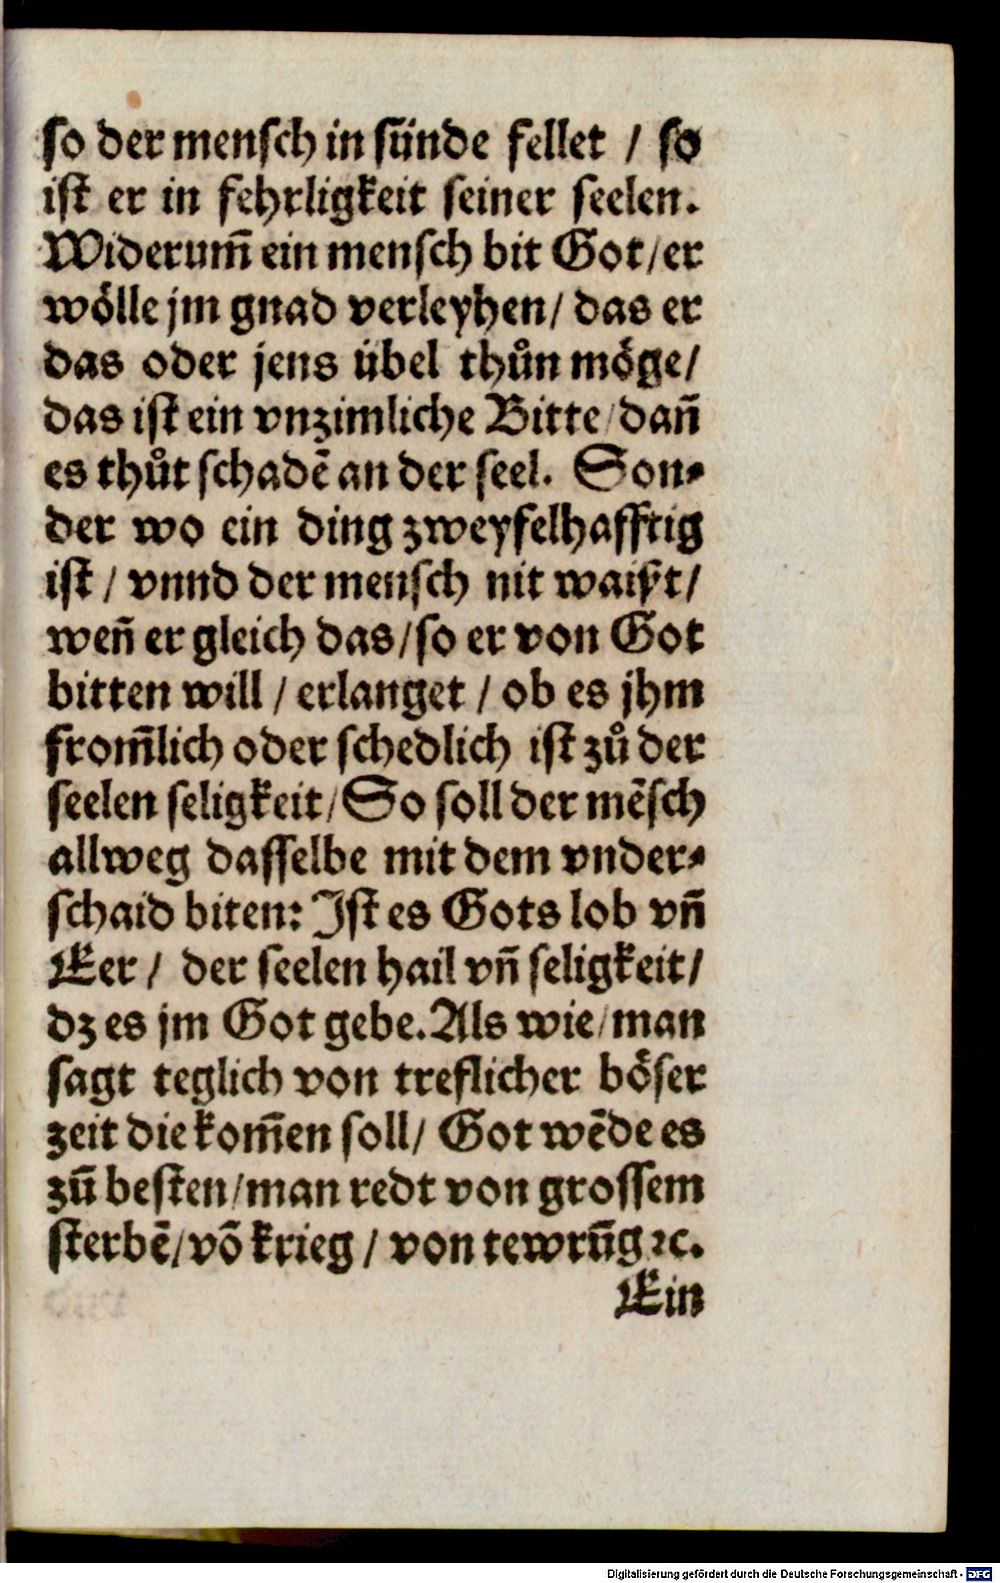 so der mensch in sünde fellet / so
ist er in fehrligkeit seiner seelen.
Widerum̃ ein mensch bit Got / er
wölle jm gnad verleyhen / das er
das oder jens übel thůn möge /
das ist ein vnzimliche Bitte / dañ
es thůt schadẽ an der seel. Son⸗
der wo ein ding zweyfelhafftig
ist / vnnd der mensch nit waißt /
weñ er gleich das / so er von Got
bitten will / erlanget / ob es jhm
from̃lich oder schedlich ist zů der
seelen seligkeit / So soll der mẽsch
allweg dasselbe mit dem vnder⸗
schaid biten: Ist es Gots lob vñ
Eer / der seelen hail vñ seligkeit /
dz es jm Got gebe. Als wie / man
sagt teglich von treflicher böser
zeit die kom̃en soll / Got wẽde es
zũ besten / man redt von grossem
sterbẽ / võ krieg / von tewrũg ꝛc.
Ein
Digitalisierung gefördert durch die Deutsche Forschungsgemeinschaft - DFG